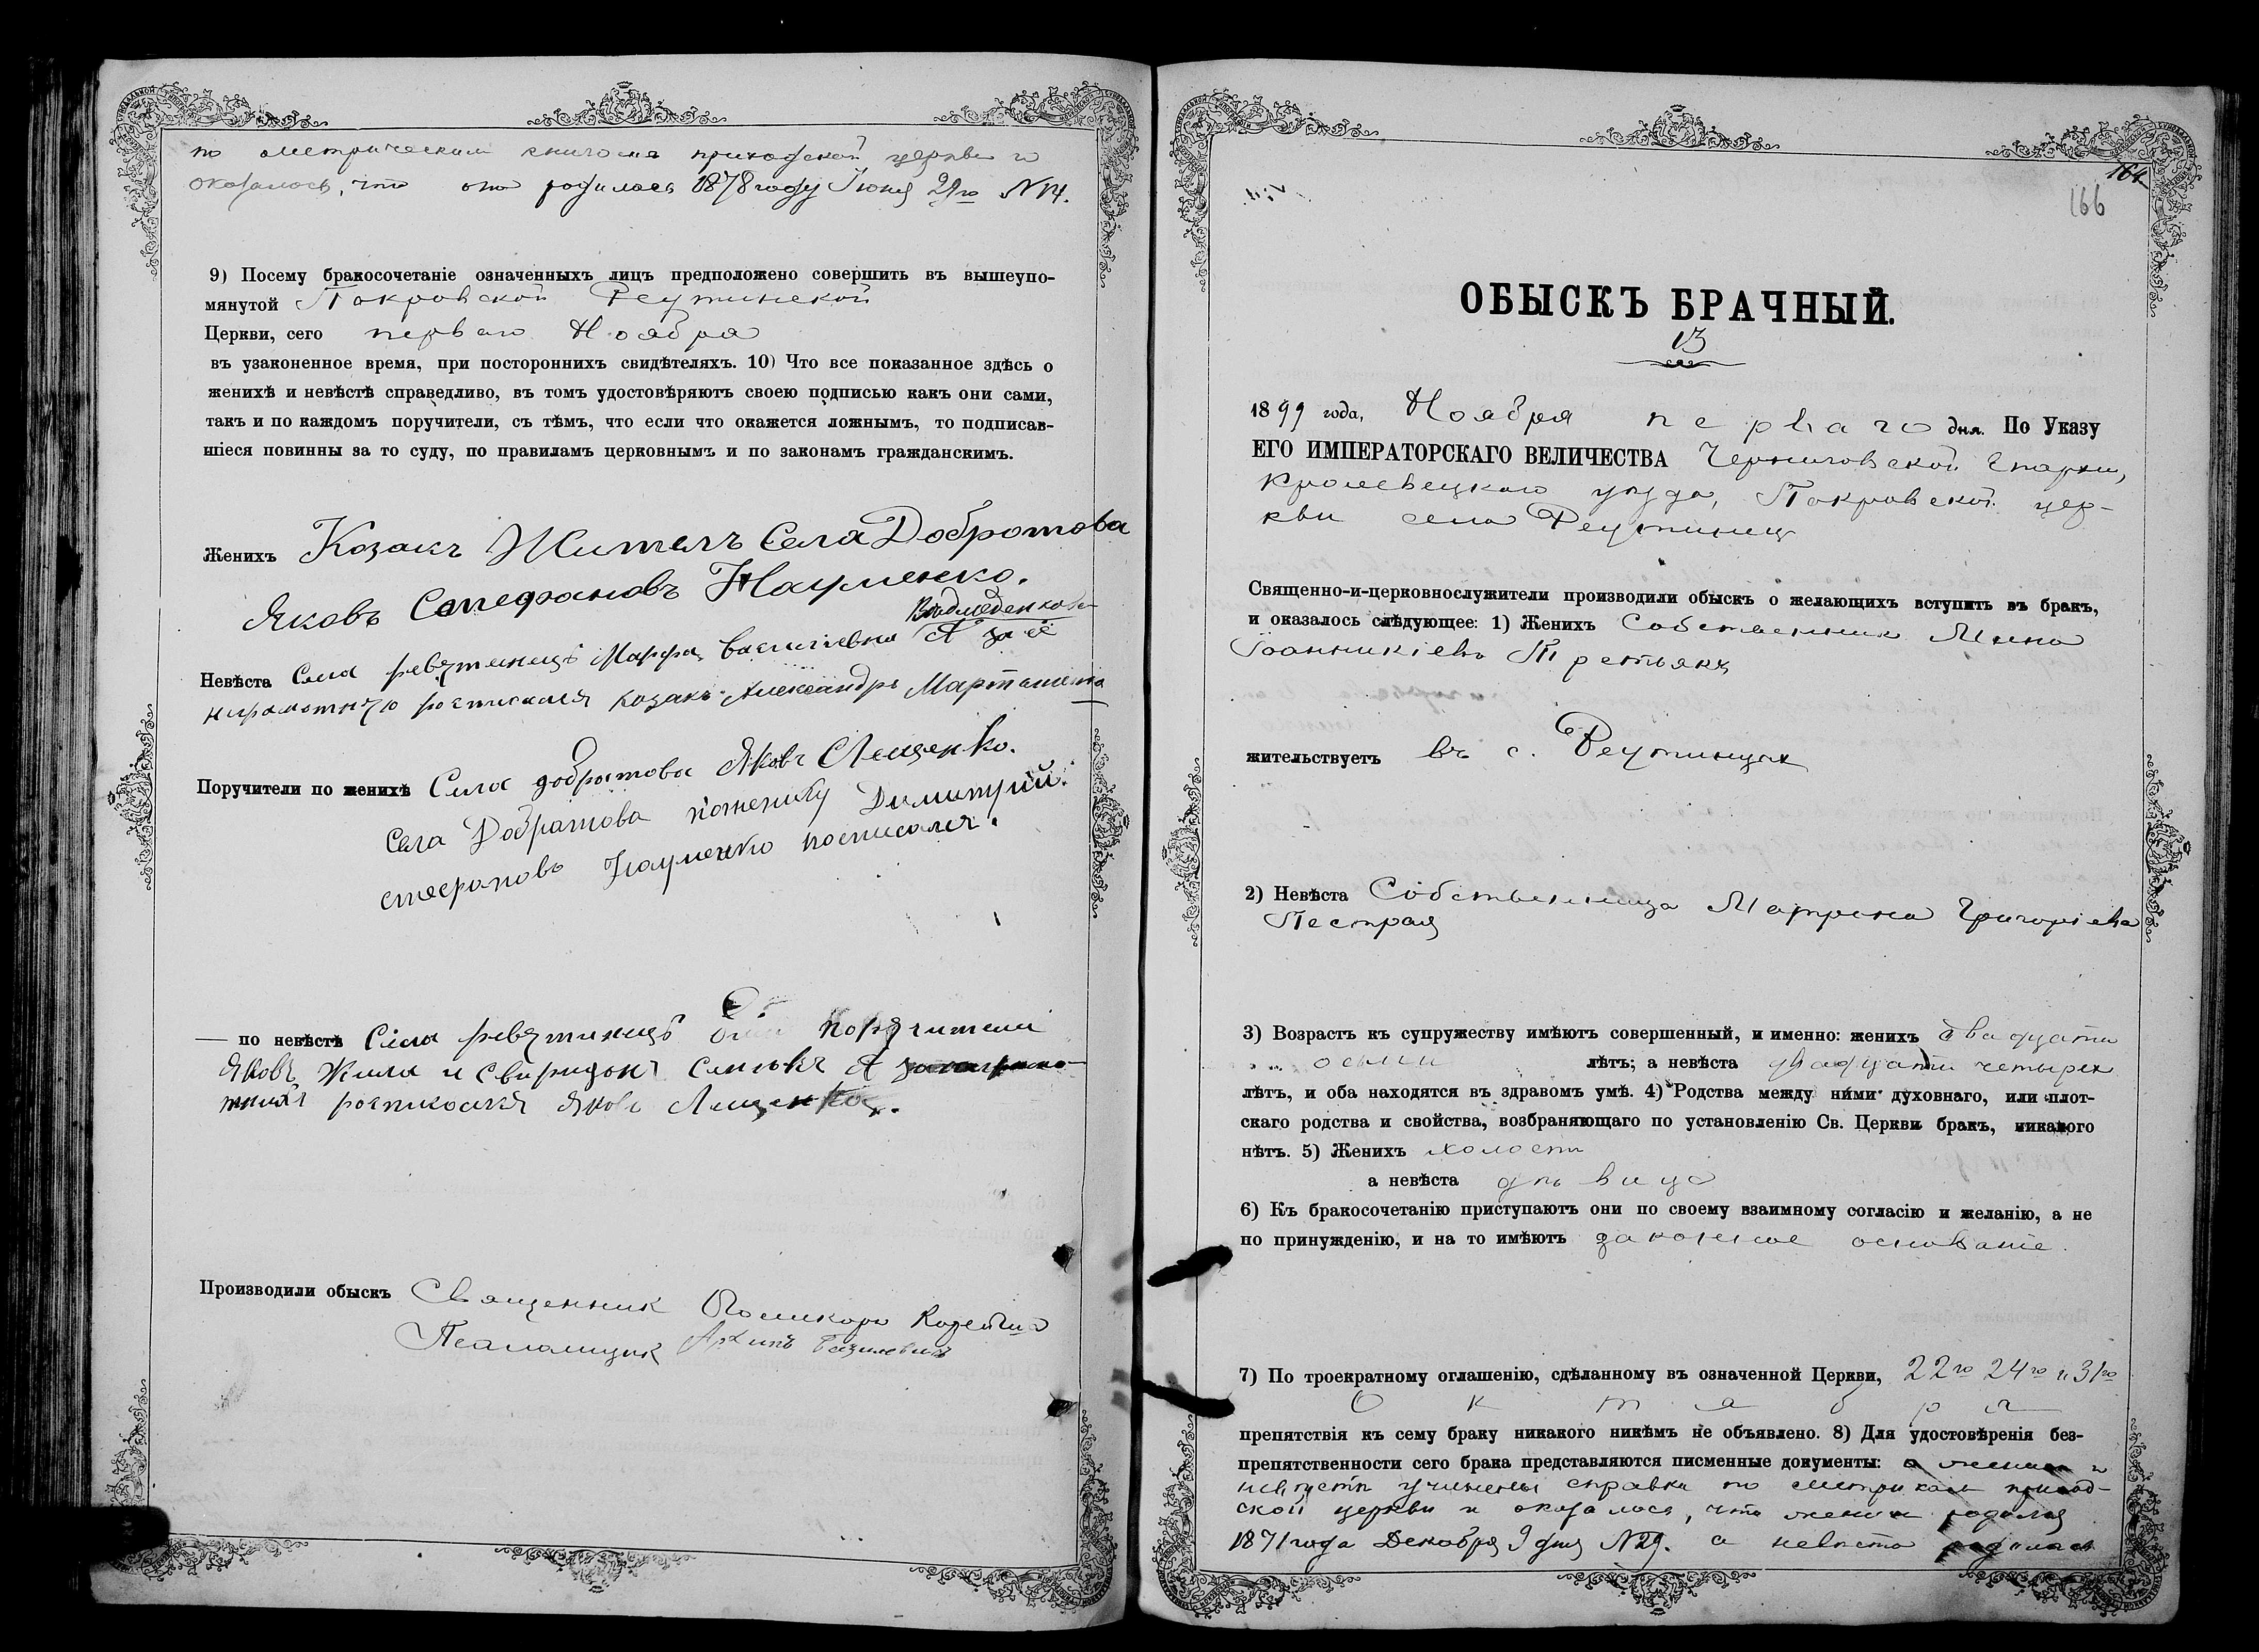 по метрическим книгамъ приходской церкви и
оказалось, что она родилась 1878 году Іюня 29го N 14.
9) Посему бракосочетаніе означенныхъ лицъ предположено совершить въ вышеупо-
мянутой Покровской Реутинской
Церкви, сего перваго Ноября
въ узаконенное время, при постороннихъ свидѣтеляхъ. 10) Что все показанное здѣсь о
женихѣ и невѣстѣ справедливо, въ томъ удостовѣряютъ своею подписью какъ они сами,
такъ и по каждомъ поручители, съ тѣмъ, что если что окажется ложнымъ, то подписав-
шіеся повинны за то суду, по правиламъ церковнымъ и по законамъ гражданскимъ.
Женихъ Козакъ Жителъ Села Добротова
Яковъ Стефановъ Науменко.
Невѣста Села ревутинецъ Марфа Василіевна А за её
неграмотную росписался козакъ Александръ Марташенко
Поручители по женихѣ Села добратова Яковъ Лещенко.
Села Добратова пожениху Димитрій
стефановъ Науменко росписался.
— по невѣстѣ Села ревутинецъ поручители
Яковъ Жила и Свиридонъ А
росписался Яковъ Лещенко.
Производили обыскъ Священник Поликарп
Псаломщик Архипъ Базилевичъ
164
166
ОБЫСКЪ БРАЧНЫЙ.
13
1899 года, Ноября перваго дня. По Указу
ЕГО ИМПЕРАТОРСКАГО ВЕЛИЧЕСТВА Черниговской Епархіи,
Кролевецкаго уѣзда, Покровской цер-
кви села Реутинец
Священно-и-церковнослужители производили обыскъ о желающихъ вступить въ бракъ,
и оказалось слѣдующее: 1) Женихъ Собственник Мина
Іоанникіевъ Третьякъ
жительствуетъ въ с. Реутинцах
2) Невѣста Собственница Матрона Григоріева
Пестрая
3) Возрастъ къ супружеству имѣютъ совершенный, и именно: женихъ двадцати
осьми лѣтъ; а невѣста двадцати четырех
лѣтъ, и оба находятся въ здравомъ умѣ. 4) Родства между ними духовнаго, или плот-
скаго родства и свойства, возбраняющаго по установленію Св. Церкви бракъ, никакого
нѣтъ. 5) Женихъ холостъ
а невѣста дѣвица
6) Къ бракосочетанію приступаютъ они по своему взаимному согласію и желанію, а не
по принужденію, и на то имѣютъ законное основаніе.
7) По троекратному оглашенію, сдѣланному въ означенной Церкви, 22го 24го и 31го
Октября
препятствія къ сему браку никакого никѣмъ не объявлено. 8) Для удостовѣренія без-
препятственности сего брака представляются писменные документы: о женихѣ и
невѣстѣ учинены справки по метрикам приход-
ской церкви и оказалось, что жених родился
1871 года Декабря 9 дня N 29. а невѣста родилась